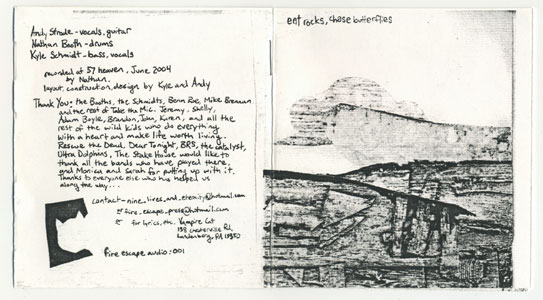 Andy Strode - vocals, guitar
Nathan Booth - drums
Kyle Schmidt - bass, vocals
recorded at 57 heaven, June 2004
by Nathan.
layout, construction, design by Kyle and Andy
Thank You: the Booths, the Schmidts, Benn Roe, Mike Brennan
and the rest of Take the Mic. Jeremy. Shelly,
Adam Boyle, Brandon, John, Karen, and all the
rest of the wild kids who do everything
with a heart and make life worth living.
Rescue the Dead, Dear Tonight, BRS, the catalyst,
Ultra Dolphins, The Stake House would like to
thank all the bands who have played there
and Monica and Sarah for putting up with it.
Thanks to everyone else who has helped us
along the way...
contact - nine_lives_and_eternity@hotmail.com
fire_escape_press@hotmail.com
for lyrics, etc. Vampire Cat
Rd,
PA
fire escape audio: 001
eat rocks, chase butterflies